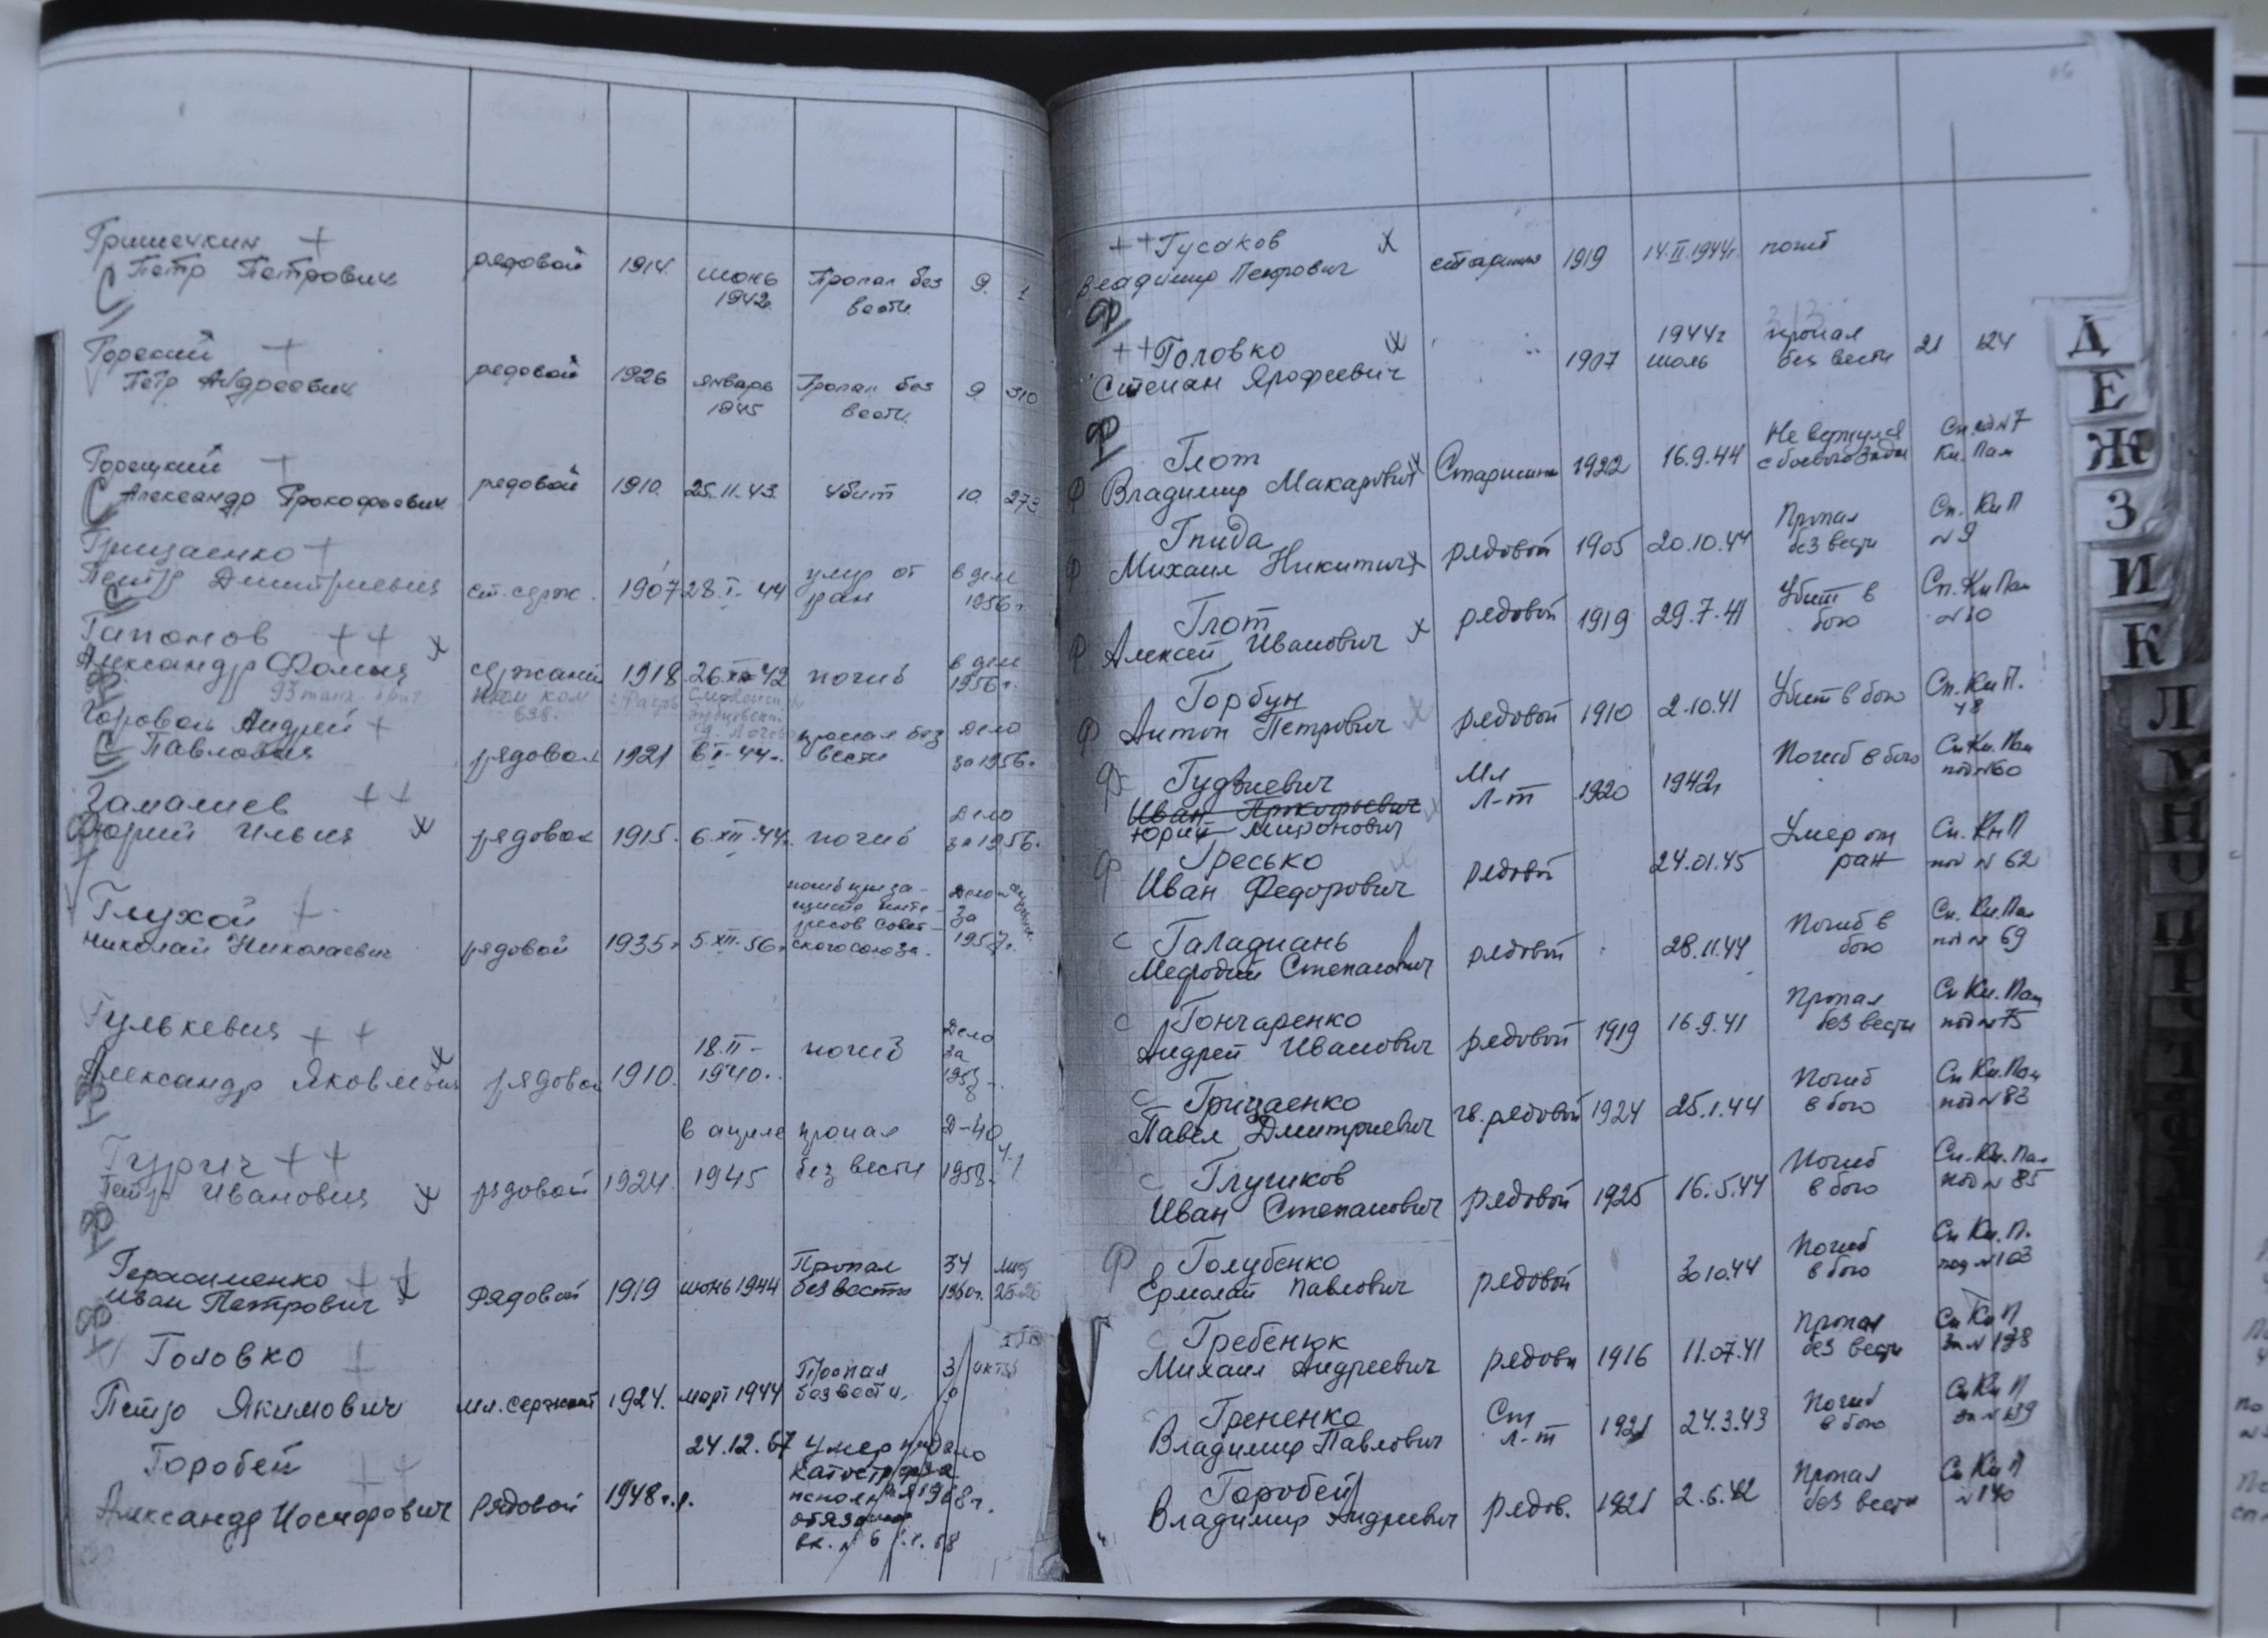 Гришечкин +
Петр Петрович рядовой 1914. июнь 1942. Пропал без вести. 9. 1
Горский +
Петр Андреевич рядовой 1926 январь 1945 Пропал без вести. 9 310
Горецкий +
Александр Прокофьевич рядовой 1910. 25.11.43. убит 10. 273
Грицаенко +
Петр Дмитриевич ст. серж. 1907 28.I-44 умер от ран в деле 1956г
Гапонов ++
Александр Фомич х сержант 1918 26.XII-42 погиб в деле 1956г.
Горовой Андрей +
Павлович рядовой 1921 6.I-44г. пропал без вести дело за 1956г.
Гамалиев ++
Юрий Ильич х рядовой 1915. 6.XII-44г. погиб дело за 1956г.
Глухой +
Николай Николаевич рядовой 1935г 5.XII-56г погиб при защите интересов Советского союза. Дело за 1957г.
Гулькевич ++
Александр Яковлевич х рядовой 1910. 18.II-1940г. погиб Дело за
Гурич ++
Петр Иванович х рядовой 1924. в апреле 1945 пропал без вести Д-40 1958г.
Герасименко ++
Иван Петрович х рядовой 1919 июнь 1944 Пропал без вести 34 1960г.
Головко +
Петр Якимович мл. сержант 1924. март 1944 Пропал без вести.
Горобей ++
Александр Иосифович рядовой 1948г.р. 24.12.67 Умер
++ Гусаков х
Владимир Петрович старшина 1919 14.II.1944г. погиб
Ф
++ Головко х
Степан Ярофеевич " " 1907 1944г июль пропал без вести 21 124
Ф
Глот
Ф Владимир Макарович х Старшина 1922 16.9.44 Не вернулся с боевого зад. Сп. под №7 Кн. Пам
Гнида
Ф Михаил Никитич х рядовой 1905 20.10.44 Пропал без вести Сп. Кн П №9
Глот
Ф Алексей Иванович х рядовой 1919 29.7.41 Убит в бою Сп. Кн Пам №10
Горбун
Ф Антон Петрович х рядовой 1910 2.10.41 Убит в бою Сп. Кн П. 48
Ф Гудзиевич
Иван Прокофьевич
Юрий Миронович Мл Л-т 1920 1942г Погиб в бою Сп Кн. Пам под №60
Гресько
Ф Иван Федорович рядовой 24.01.45 Умер от ран Сп. Кн П под № 62
С Галадиань
Мефодий Степанович рядовой 28.11.44 Погиб в бою Сп. Кн. Пам под № 69
С Гончаренко
Андрей Иванович рядовой 1919 16.9.41 Пропал без вести Сп Кн. Пам под №75
С Грицаенко
Павел Дмитриевич гв. рядовой 1924 25.1.44 Погиб в бою Сп Кн. Пам под №83
С Глушков
Иван Степанович рядовой 1925 16.5.44 Погиб в бою Сп. Кн. Пам под № 85
Ф Голубенко
Ермолай Павлович рядовой 30.10.44 Погиб в бою Сп Кн. П. под №103
С Гребенюк
Михаил Андреевич рядовой 1916 11.07.41 Пропал без вести Сп Кн П за №138
С Грененко
Владимир Павлович Ст л-т 1921 24.3.43 Погиб в бою Сп Кн П за №139
Горобей
Владимир Андреевич рядов. 1921 2.6.42 Пропал без вести Сп Кн П №140
Д
Е
Ж
З
И
К
Л